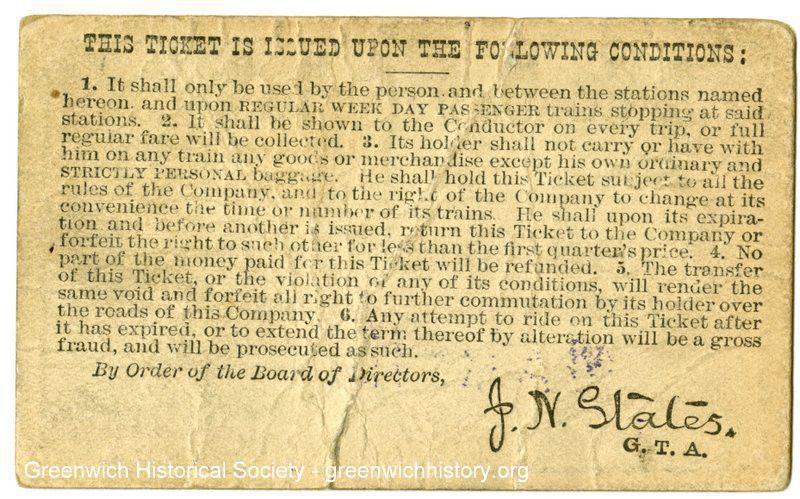 THIS TICKET IS ISSUED UPON THE FOLLOWING CONDITIONS:
1. It shall only be used by the person and between the stations named
hereon and upon REGULAR WEEK DAY PASSENGER trains stopping at said
stations. 2. It shall be shown to the Conductor on every trip, or full
regular fare will be collected. 3. Its holder shall not carry or have with
him on any train any goods or merchandise except his own ordinary and
STRICTLY PERSONAL baggage. He shall hold this Ticket subject to all the
rules of the Company, and to the right of the Company to change at its
convenience the time or number of its trains. He shall upon its expira-
tion and before another is issued, return this Ticket to the Company or
forfeit the right to such other for less than the first quarter's price. 4. No
part of the money paid for this Ticket will be refunded. 5. The transfer
of this Ticket, or the violation of any of its conditions, will render the
same void and forfeit all right to further commutation by its holder over
the roads of this Company. 6. Any attempt to ride on this Ticket after
it has expired, or to extend the term thereof by alteration will be a gross
fraud, and will be prosecuted as such.
By Order of the Board of Directors,
J. N. States.
G. T. A.
Greenwich Historical Society - greenwichhistory.org